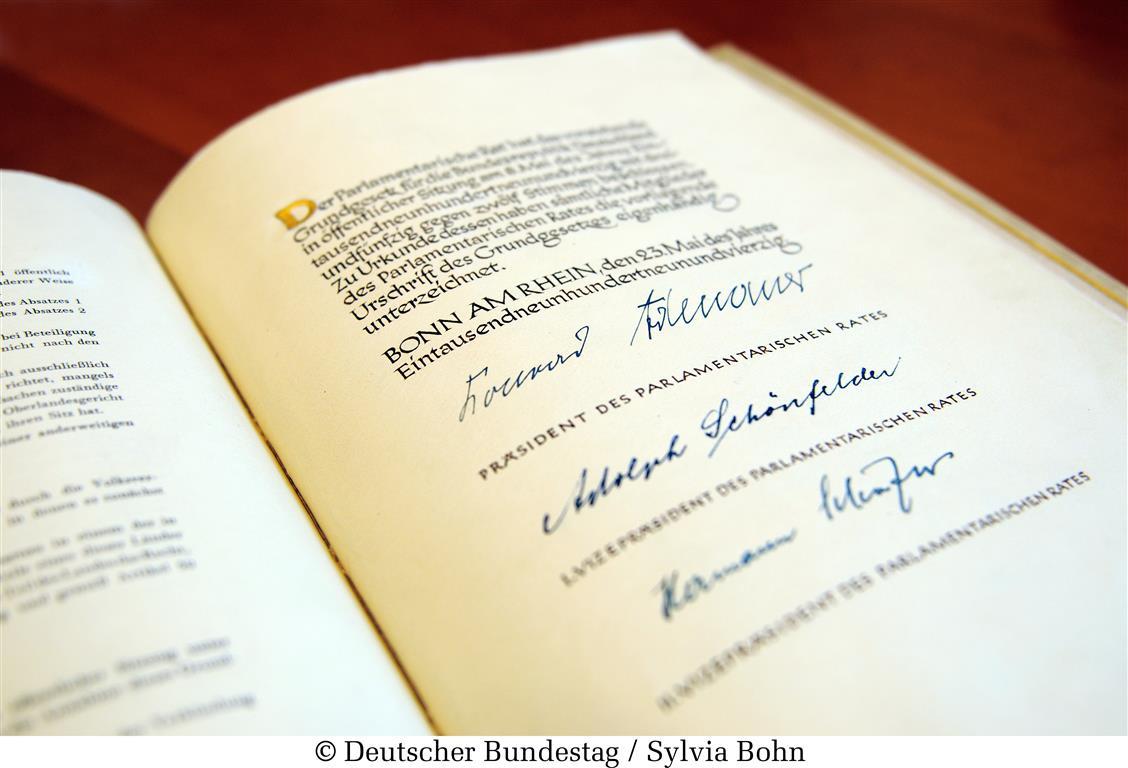 1 öffentlich
anderer Weise
des Absatzes 1
des Absatzes 2
bei Beteiligung
nicht nach den
ch ausschließlich
richtet, mangels
sachen zuständige
Oberlandesgericht
ihren Sitz hat.
einer anderweitigen
durch die Volksver-
in ihnen zu
in einem der in
eines ihrer Länder
und gemäß Artikel
Sitzung unter
Der Parlamentarische Rat hat das vorstehende
Grundgesetz für die Bundesrepublik Deutschland
in öffentlicher Sitzung am 8. Mai des Jahres Ein-
tausendneunhundertneunundvierzig mit drei-
undfünfzig gegen zwölf Stimmen beschlossen.
Zu Urkunde dessen haben sämtliche Mitglieder
des Parlamentarischen Rates die vorliegende
Urschrift des Grundgesetzes eigenhändig
unterzeichnet.
BONN AM RHEIN, den 23. Mai des Jahres
Eintausendneunhundertneunundvierzig
Konrad Adenauer
PRÆSIDENT DES PARLAMENTARISCHEN RATES
Adolph Schönfelder
I. VIZEPRÆSIDENT DES PARLAMENTARISCHEN RATES
Hermann Schäfer
II. VIZEPRÆSIDENT DES PARLAMENTARISCHEN RATES
© Deutscher Bundestag / Sylvia Bohn